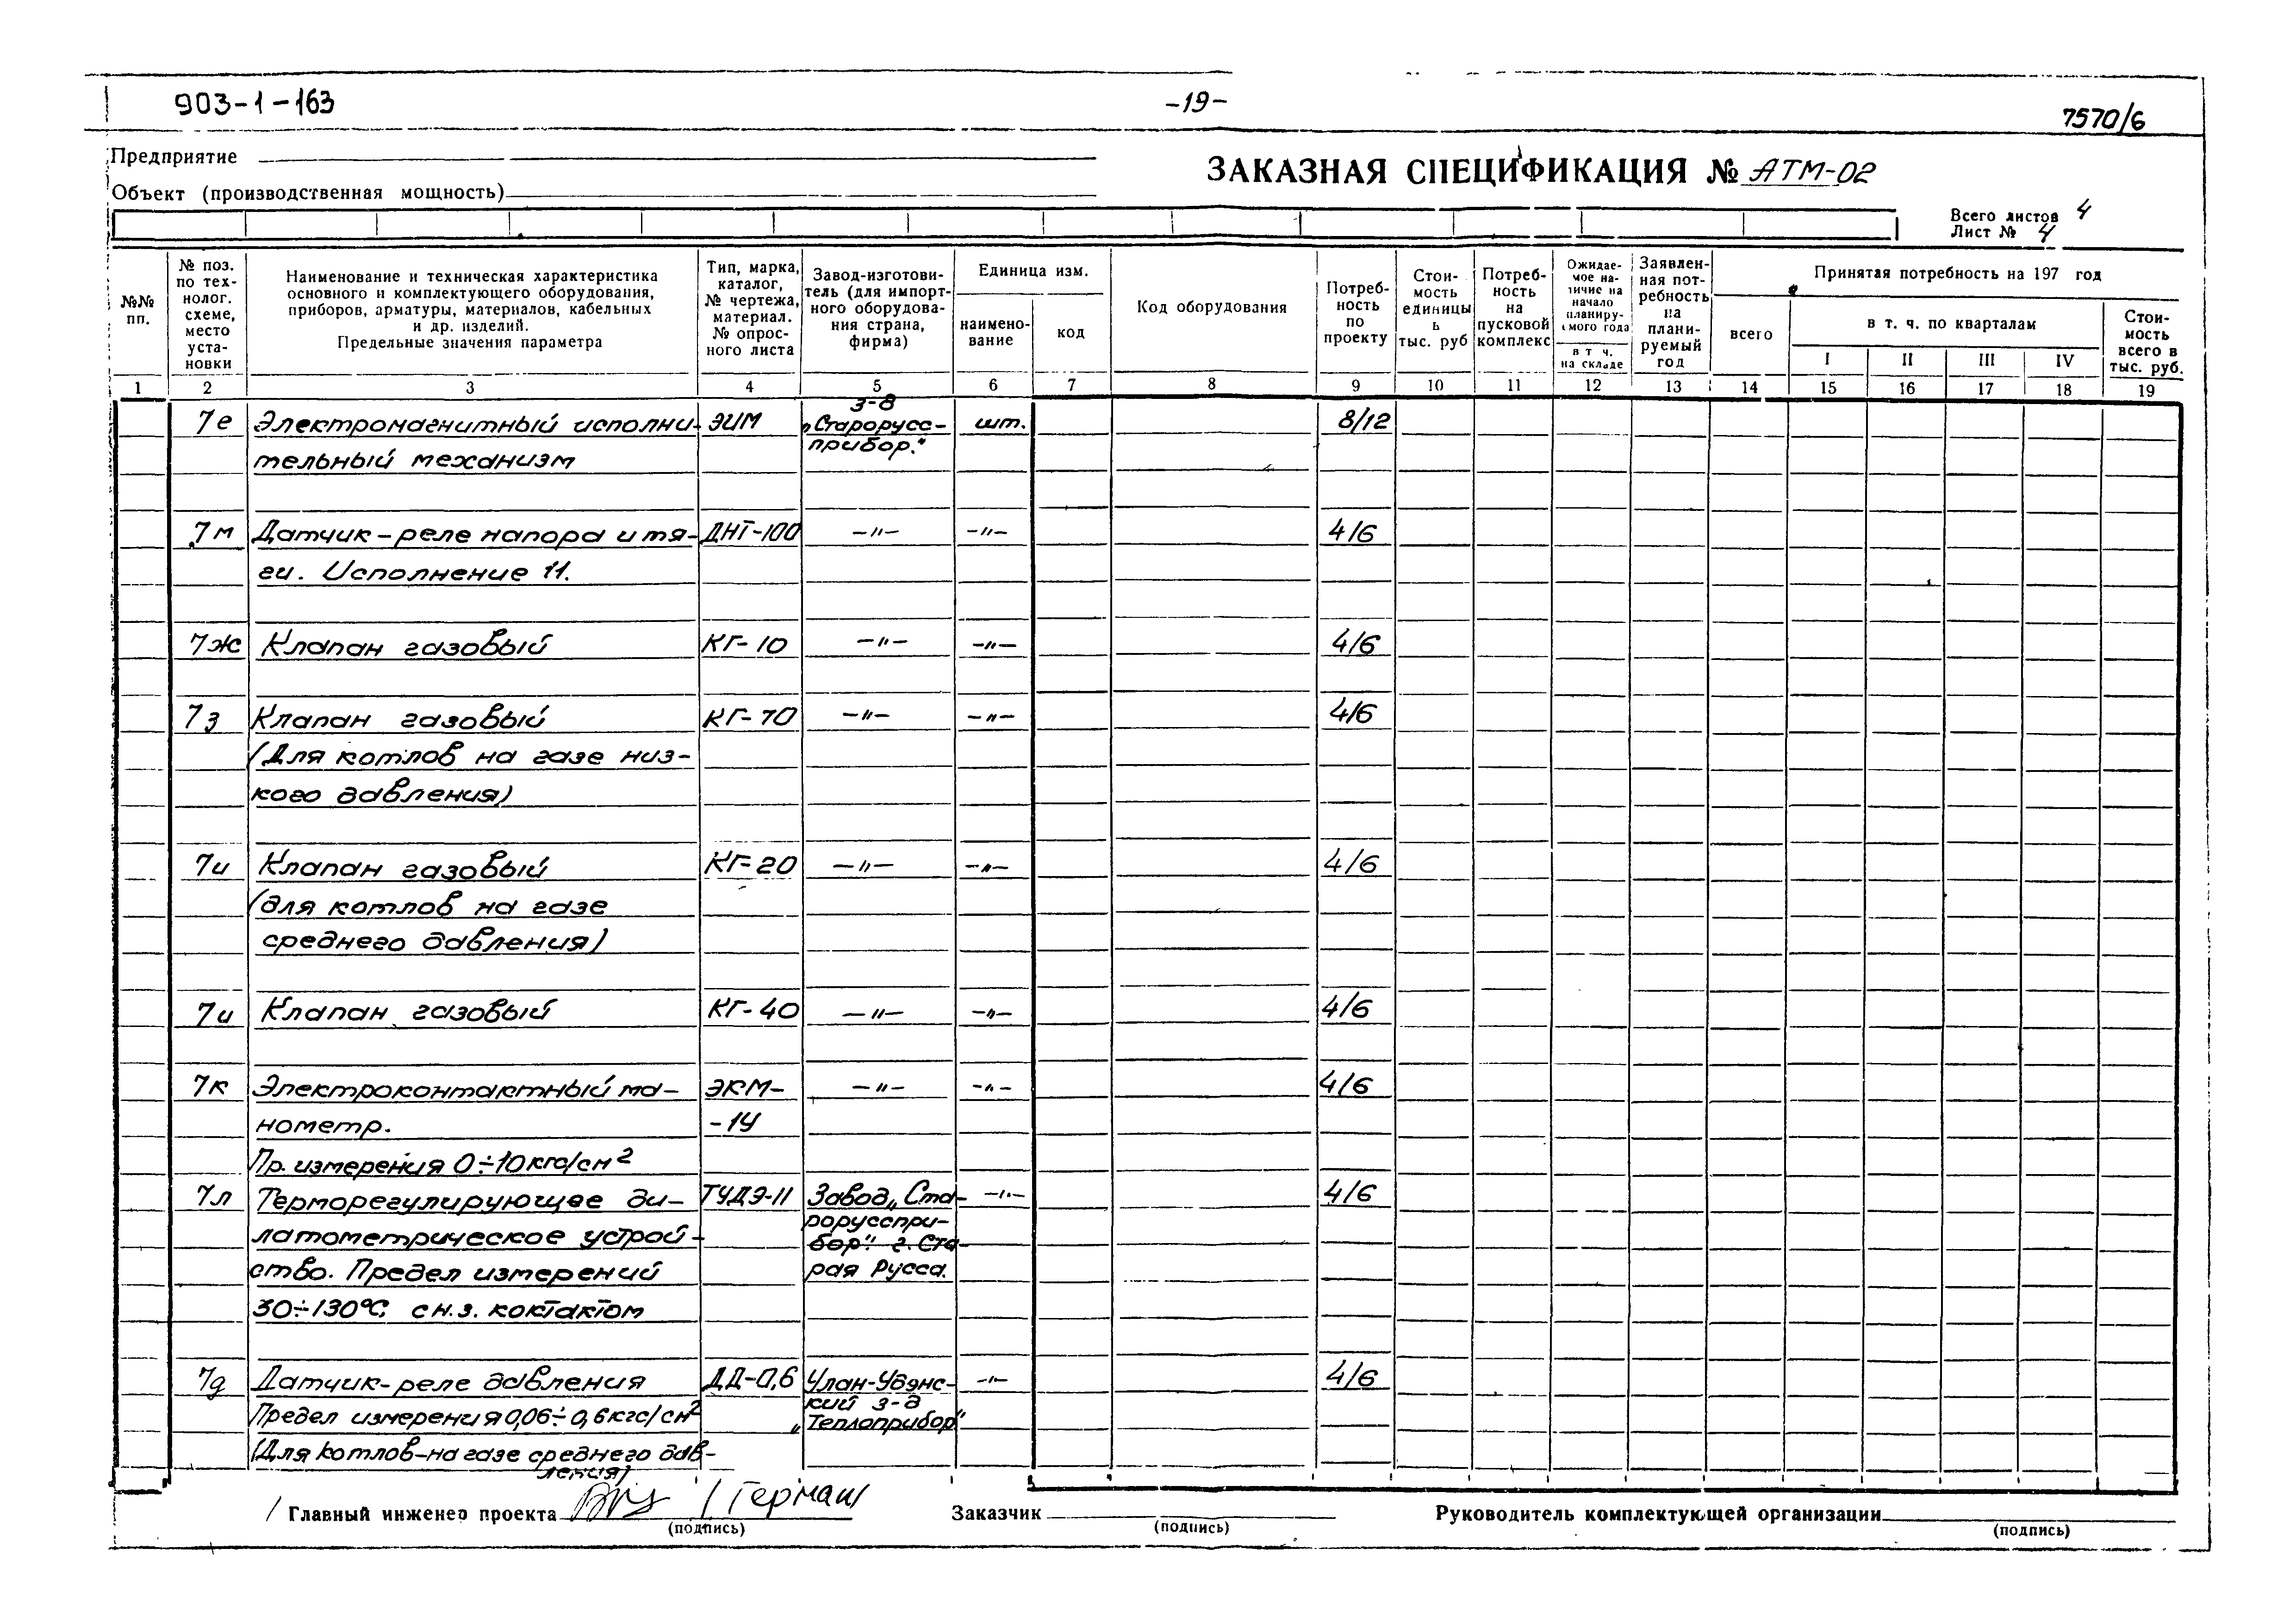 903-1-163
-19-
7570/6
Предприятие
ЗАКАЗНАЯ СПЕЦИФИКАЦИЯ № АТМ-02
Объект (производственная мощность)
Всего листов 4
Лист № 4
№№ пп.
№ поз. по технолог. схеме, место установки
Наименование и техническая характеристика
основного и комплектующего оборудования,
приборов, арматуры, материалов, кабельных
и др. изделий.
Предельные значения параметра
Тип, марка, каталог, № чертежа, материал. № опросного листа
Завод-изготовитель (для импортного оборудования страна, фирма)
Единица изм.
наименование
код
Код оборудования
Потребность по проекту
Стоимость единицы ь тыс. руб
Потребность на пусковой комплекс
Ожидаемое наличие на начало планируемого года
в т ч. на складе
Заявленная потребность на планируемый год
Принятая потребность на 197 год
всего
в т. ч. по кварталам
I II III IV
Стоимость всего в тыс. руб.
1 2 3 4 5 6 7 8 9 10 11 12 13 14 15 16 17 18 19
7е Электромагнитный исполни- ЭИМ з-д „Старорусс- шт. 8/12
тельный механизм прибор."
7м Датчик-реле напора и тя- ДНТ-100 -"- -"- 4/6
ги. Исполнение 11.
7ж Клапан газовый КГ-10 -"- -"- 4/6
7з Клапан газовый КГ-70 -"- -"- 4/6
(Для котлов на газе низ-
кого давления)
7и Клапан газовый КГ-20 -"- -"- 4/6
(для котлов на газе
среднего давления)
7и Клапан газовый КГ-40 -"- -"- 4/6
7к Электроконтактный ма- ЭКМ- -"- -"- 4/6
нометр. -1У
Пр. измерения 0÷10кгс/см²
7л Терморегулирующее ди- ТУДЭ-11 Завод „Ста- -"- 4/6
латометрическое устрой- рорусспри-
бор". г. Ста-
ство. Предел измерений рая Русса.
30÷130°С; с н.з. контактом
7д Датчик-реле давления ДД-0,6 Улан-Удэнс- -"- 4/6
кий з-д
Предел измерения 0,06÷0,6кгс/см² „Теплоприбор"
(Для котлов-на газе среднего дав-
ления)
Главный инженер проекта /Герман/
(подпись)
Заказчик
(подпись)
Руководитель комплектующей организации
(подпись)